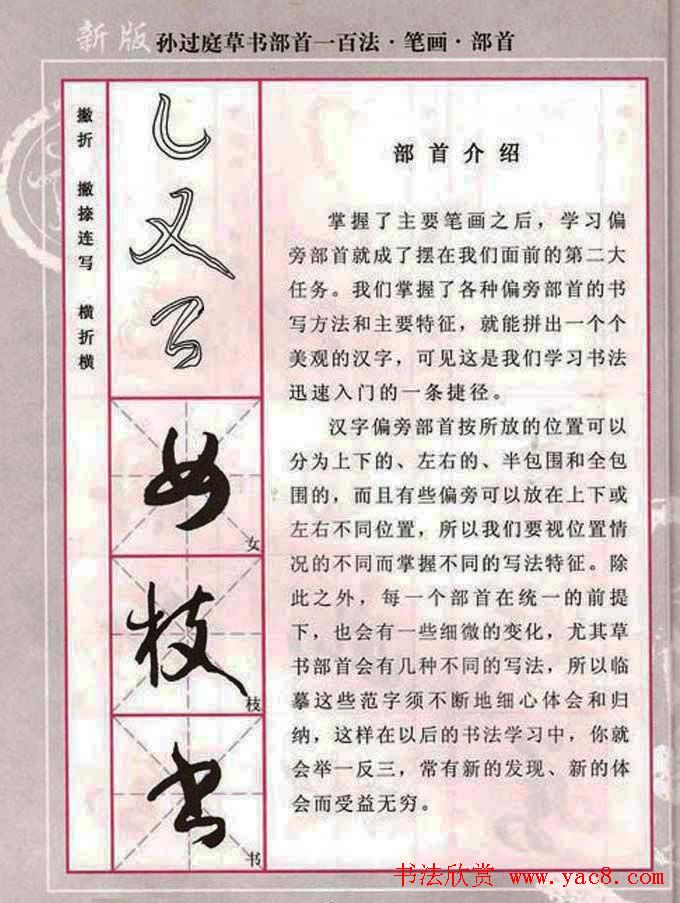 新版 孙过庭草书部首一百法·笔画·部首
撇折 撇捺连写 横折横
女
枝
书
部首介绍
掌握了主要笔画之后，学习偏
旁部首就成了摆在我们面前的第二大
任务。我们掌握了各种偏旁部首的书
写方法和主要特征，就能拼出一个个
美观的汉字，可见这是我们学习书法
迅速入门的一条捷径。
汉字偏旁部首按所放的位置可以
分为上下的、左右的、半包围和全包
围的，而且有些偏旁可以放在上下或
左右不同位置，所以我们要视位置情
况的不同而掌握不同的写法特征。除
此之外，每一个部首在统一的前提
下，也会有一些细微的变化，尤其草
书部首会有几种不同的写法，所以临
摹这些范字须不断地细心体会和归
纳，这样在以后的书法学习中，你就
会举一反三，常有新的发现、新的体
会而受益无穷。
书法欣赏 www.yac8.com